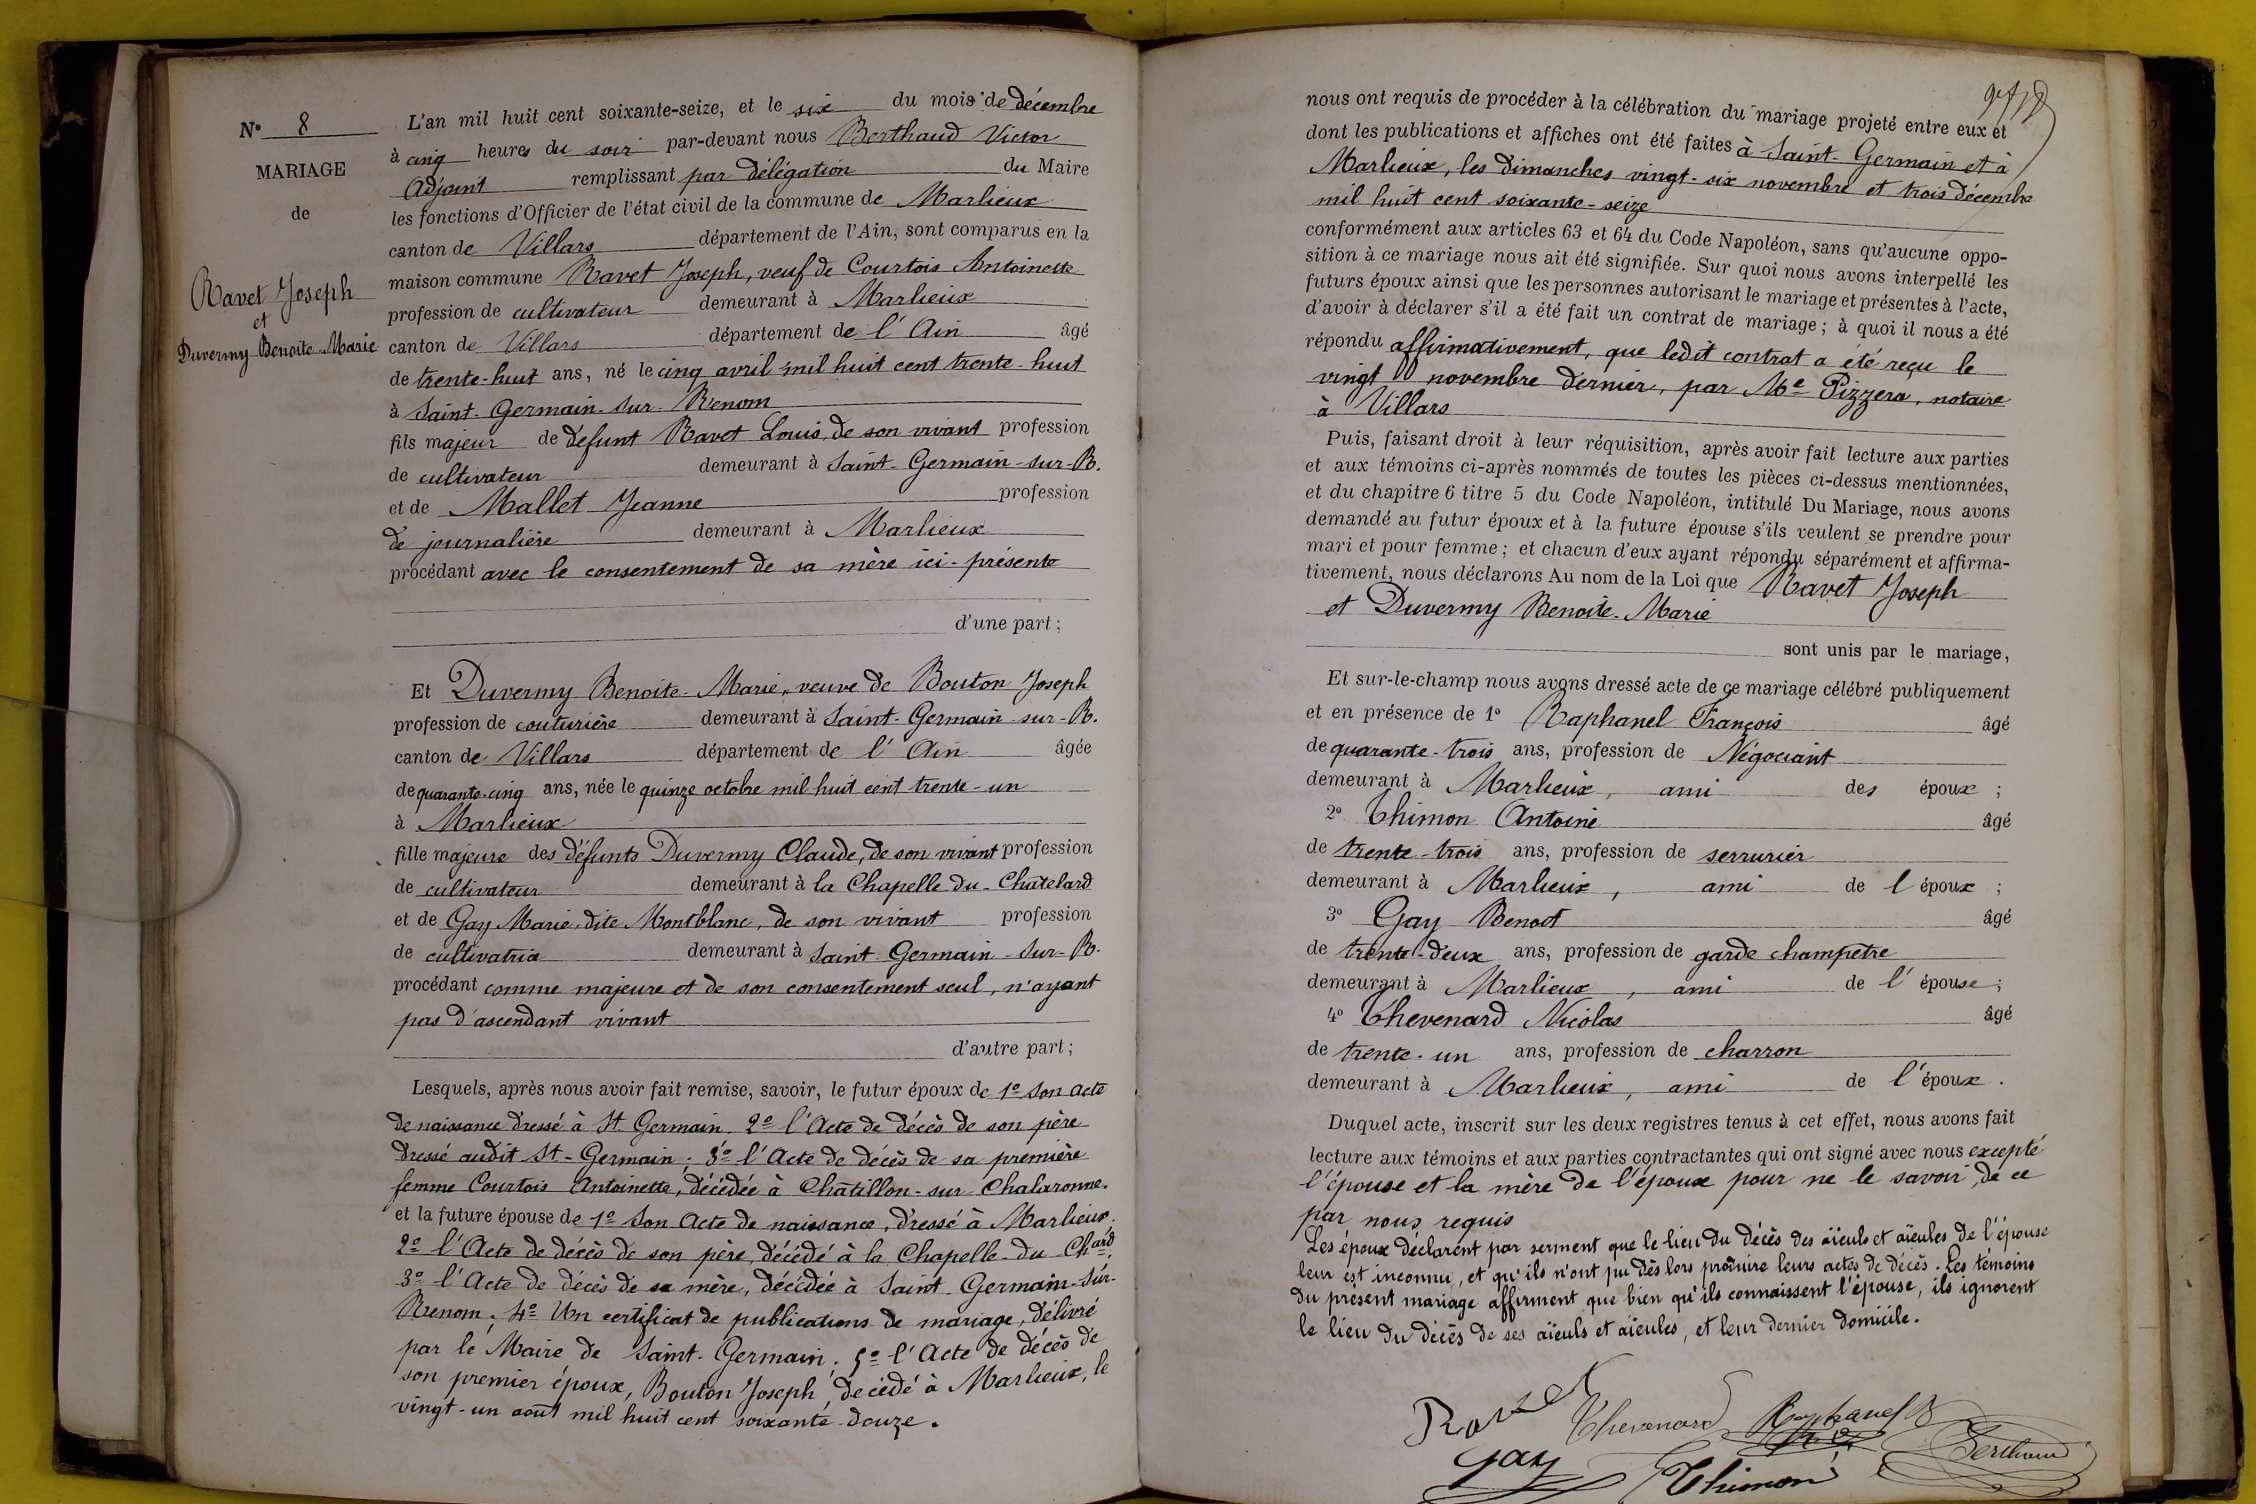 N° 8
MARIAGE
de
Ravet Joseph
et
Duvermy Benoite-Marie
L'an mil huit cent soixante-seize, et le six du mois de décembre
à cinq heures du soir par-devant nous Berthaud Victor
Adjoint remplissant par délégation du Maire
les fonctions d'Officier de l'état civil de la commune de Marlieux
canton de Villars département de l'Ain, sont comparus en la
maison commune Ravet Joseph, veuf de Courtois Antoinette
profession de cultivateur demeurant à Marlieux
canton de Villars département de l'Ain âgé
de trente-huit ans, né le cinq avril mil huit cent trente-huit
à Saint-Germain-sur-Renom
fils majeur de défunt Ravet Louis, de son vivant profession
de cultivateur demeurant à Saint-Germain-sur-R.
et de Mallet Jeanne profession
de journalière demeurant à Marlieux
procédant avec le consentement de sa mère ici-présente
d'une part ;
Et Duvermy Benoite-Marie, veuve de Bouton Joseph
profession de couturière demeurant à Saint-Germain-sur-R.
canton de Villars département de l'Ain âgée
de quarante-cinq ans, née le quinze octobre mil huit cent trente-un
à Marlieux
fille majeure des défunts Duvermy Claude, de son vivant profession
de cultivateur demeurant à la Chapelle-du-Chatelard
et de Gay Marie, dite Montblanc, de son vivant profession
de cultivatrice demeurant à Saint-Germain-sur-R.
procédant comme majeure et de son consentement seul, n'ayant
pas d'ascendant vivant
d'autre part ;
Lesquels, après nous avoir fait remise, savoir, le futur époux de 1° son acte
de naissance dressé à St Germain. 2° l'Acte de décès de son père
dressé audit St-Germain ; 3° l'Acte de décès de sa première
femme Courtois Antoinette, décédée à Châtillon-sur-Chalaronne.
et la future épouse de 1° Son Acte de naissance, dressé à Marlieux.
2° l'Acte de décès de son père, décédé à la Chapelle-du-Chard.
3° l'Acte de décès de sa mère, décédée à Saint-Germain-sur-
Renom ; 4° Un certificat de publications de mariage, délivré
par le Maire de Saint-Germain ; 5° l'Acte de décès de
son premier époux, Bouton Joseph, décédé à Marlieux, le
vingt-un août mil huit cent soixante-douze.
nous ont requis de procéder à la célébration du mariage projeté entre eux et
dont les publications et affiches ont été faites à Saint-Germain et à
Marlieux, les dimanches vingt-six novembre et trois décembre
mil huit cent soixante-seize
conformément aux articles 63 et 64 du Code Napoléon, sans qu'aucune oppo-
sition à ce mariage nous ait été signifiée. Sur quoi nous avons interpellé les
futurs époux ainsi que les personnes autorisant le mariage et présentes à l'acte,
d'avoir à déclarer s'il a été fait un contrat de mariage ; à quoi il nous a été
répondu affirmativement, que ledit contrat a été reçu le
vingt novembre dernier, par Me Pizzera, notaire
à Villars
Puis, faisant droit à leur réquisition, après avoir fait lecture aux parties
et aux témoins ci-après nommés de toutes les pièces ci-dessus mentionnées,
et du chapitre 6 titre 5 du Code Napoléon, intitulé Du Mariage, nous avons
demandé au futur époux et à la future épouse s'ils veulent se prendre pour
mari et pour femme ; et chacun d'eux ayant répondu séparément et affirma-
tivement, nous déclarons Au nom de la Loi que Ravet Joseph
et Duvermy Benoite-Marie
sont unis par le mariage,
Et sur-le-champ nous avons dressé acte de ce mariage célébré publiquement
et en présence de 1° Raphanel François âgé
de quarante-trois ans, profession de Négociant
demeurant à Marlieux, ami des époux ;
2° Thimon Antoine âgé
de trente-trois ans, profession de serrurier
demeurant à Marlieux, ami de l'époux ;
3° Gay Benoit âgé
de trente-deux ans, profession de garde champêtre
demeurant à Marlieux, ami de l'épouse ;
4° Thevenard Nicolas âgé
de trente-un ans, profession de charron
demeurant à Marlieux, ami de l'époux.
Duquel acte, inscrit sur les deux registres tenus à cet effet, nous avons fait
lecture aux témoins et aux parties contractantes qui ont signé avec nous excepté
l'épouse et la mère de l'époux pour ne le savoir, de ce
par nous requis
Les époux déclarent par serment que le lieu du décès des aïeuls et aïeules de l'épouse
leur est inconnu, et qu'ils n'ont pu dès lors produire leurs actes de décès. Les témoins
du présent mariage affirment que bien qu'ils connaissent l'épouse, ils ignorent
le lieu du décès de ses aïeuls et aïeules, et leur dernier domicile.
Ravet Thevenard Raphanel
Gay Thimon Berthaud